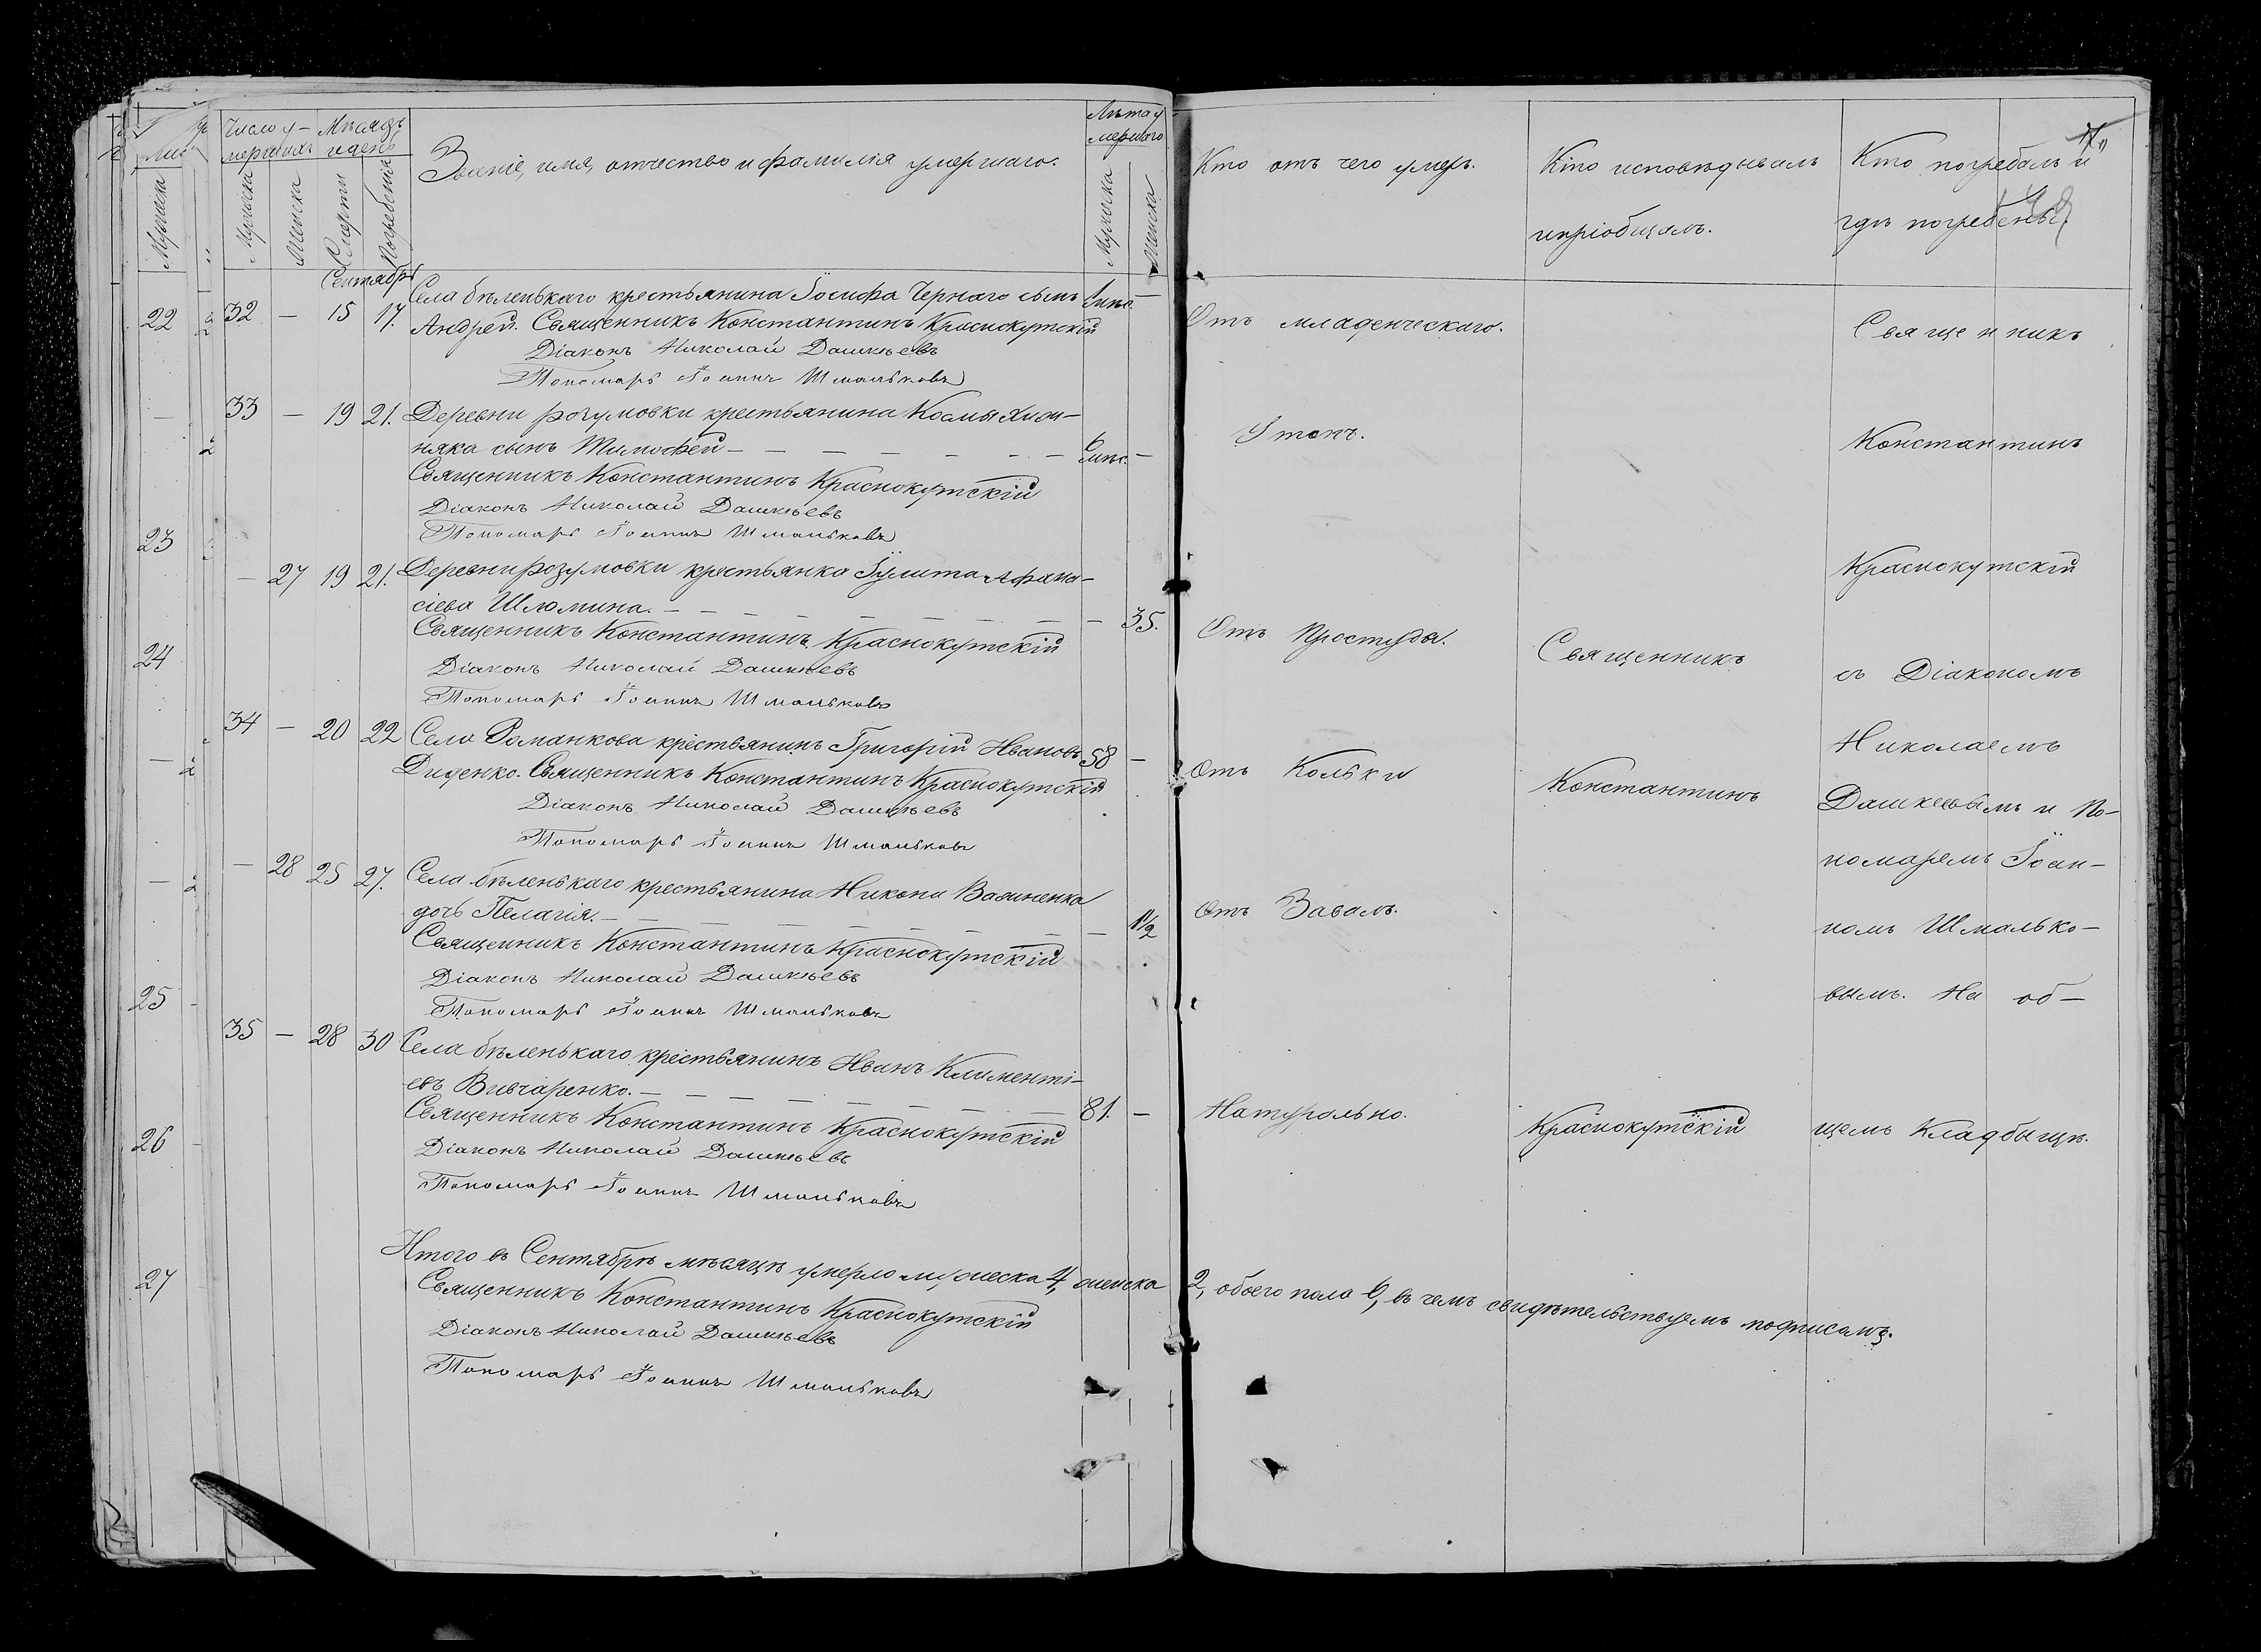 Число у-
мершихъ
Мѣсяцъ
и день
Званіе, имя, отчество и фамилія умершаго.
Лѣта у
мершаго
Мужеска
Женска
Смерти
Погребенія
Мужеска
Женска
Кто отъ чего умеръ.
Кто исповѣдывалъ
ипріобщалъ.
Кто погребалъ и
гдѣ погребены.
Сентябрь
22
32 — 15 17. Села бѣленькаго крестьянина Іосифа Чернаго сынъ
Андрей. Священникъ Константинъ Краснокутскій
Діаконъ Николай Дашкѣевъ
Пономарь Іоаннъ Шмальковъ
Отъ младенческаго.
Священникъ
33 — 19 21. Деревни розумовки крестьянина Космы Хиж-
няка сынъ Тимофей — — — — — — —
Священникъ Константинъ Краснокутскій
Діаконъ Николай Дашкѣевъ
Пономарь Іоаннъ Шмальковъ
Утопъ.
Константинъ
23
— 27 19 21. Деревни розумовки крестьянка Іулита Афана-
сіева Шлюмина. — — — — — — — — 35.
Священникъ Константинъ Краснокутскій
Діаконъ Николай Дашкѣевъ
Пономарь Іоаннъ Шмальковъ
Отъ Простуды.
Священникъ
Краснокутскій
съ Діакономъ
24
34 — 20 22 Села Романкова крестьянинъ Григорій Ивановъ 58 —
Диденко. Священникъ Константинъ Краснокутскій
Діаконъ Николай Дашкѣевъ
Пономарь Іоаннъ Шмальковъ
Отъ Кольки
Константинъ
Николаемъ
Дашкевымъ и По-
номаремъ Іоан-
— 28 25 27. Села бѣленькаго крестьянина Никона
дочь Пелагія. — — — — — — — — — 1½
Священникъ Константинъ Краснокутскій
Діаконъ Николай Дашкѣевъ
Пономарь Іоаннъ Шмальковъ
Отъ Завалъ.
номъ Шмалько-
вымъ. На об-
25
35 — 28 30 Села бѣленькаго крестьянинъ Иванъ Климентi-
евъ Вивчаренко. — — — — — — — — 81. —
Священникъ Константинъ Краснокутскій
Діаконъ Николай Дашкѣевъ
Пономарь Іоаннъ Шмальковъ
Натурально.
Краснокутскій
щемъ Кладбищѣ.
26
27
Итого въ Сентябрѣ мѣсяцѣ умерло мужеска 4, женска 2, обоего пола 6, въ чемъ свидѣтельствуемъ подписомъ.
Священникъ Константинъ Краснокутскій
Діаконъ Николай Дашкѣевъ
Пономарь Іоаннъ Шмальковъ